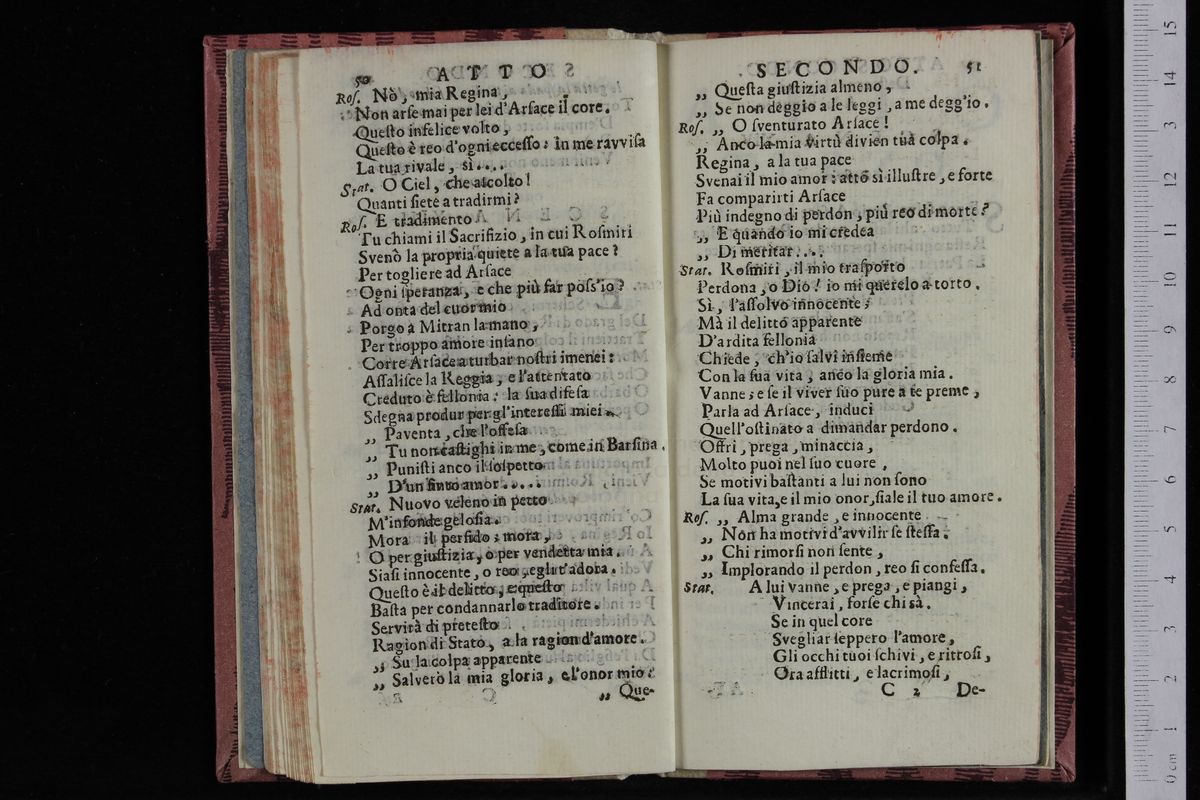 50 ATTO
Roſ. Nò, mia Regina,
Non arſe mai per lei d'Arſace il core.
Queſto infelice volto,
Queſto è reo d'ogni ecceſſo: in me ravviſa
La tua rivale, sì....
Stat. O Ciel, che aſcolto!
Quanti ſiete a tradirmi?
Roſ. E tradimento
Tu chiami il Sacrifizio, in cui Roſmiri
Svenò la propria quiete a la tua pace?
Per togliere ad Arſace
Ogni ſperanza, e che più far poſs'io?
Ad onta del cuor mio
Porgo a Mitran la mano,
Per troppo amore inſano
Corre Arſace a turbar noſtri imenei:
Aſſaliſce la Reggia, e l'attentato
Creduto è fellonia: la ſua difeſa
Sdegna produr per gl'intereſſi miei
,, Paventa, che l'offeſa
,, Tu non caſtighi in me, come in Barſina.
,, Puniſti anco il ſoſpetto
,, D'un finto amor.....
Stat. Nuovo veleno in petto
M'infonde geloſia.
Mora il perfido: mora,
O per giuſtizia, o per vendetta mia.
Siaſi innocente, o reo, egli t'adora.
Queſto è il delitto, e queſto
Baſta per condannarlo traditore.
Servirà di preteſto
Ragion di Stato, a la ragion d'amore.
,, Su la colpa apparente
,, Salverò la mia gloria, e l'onor mio:
,, Que-
SECONDO. 51
,, Queſta giuſtizia almeno,
,, Se non deggio a le leggi, a me degg'io.
Roſ. ,, O ſventurato Arſace!
,, Anco la mia virtù divien tua colpa.
Regina, a la tua pace
Svenai il mio amor: atto sì illuſtre, e forte
Fa comparirti Arſace
Più indegno di perdon, più reo di morte?
,, E quando io mi credea
,, Di meritar....
Stat. Roſmiri, il mio traſporto
Perdona, o Dio! io mi querelo a torto.
Sì, l'aſſolvo innocente;
Mà il delitto apparente
D'ardita fellonia
Chiede, ch'io ſalvi inſieme
Con la ſua vita, anco la gloria mia.
Vanne; e ſe il viver ſuo pure a te preme,
Parla ad Arſace, induci
Quell'oſtinato a dimandar perdono.
Offri, prega, minaccia,
Molto puoi nel ſuo cuore,
Se motivi baſtanti a lui non ſono
La ſua vita, e il mio onor, ſiale il tuo amore.
Roſ. ,, Alma grande, e innocente
,, Non ha motivi d'avvilir ſe ſteſſa.
,, Chi rimorſi non ſente,
,, Implorando il perdon, reo ſi confeſſa.
Stat. A lui vanne, e prega, e piangi,
Vincerai, forſe chi sà.
Se in quel core
Svegliar ſeppero l'amore,
Gli occhi tuoi ſchivi, e ritroſi,
Ora afflitti, e lacrimoſi,
C 2 De-
0 cm 1 2 3 4 5 6 7 8 9 10 11 12 13 14 15